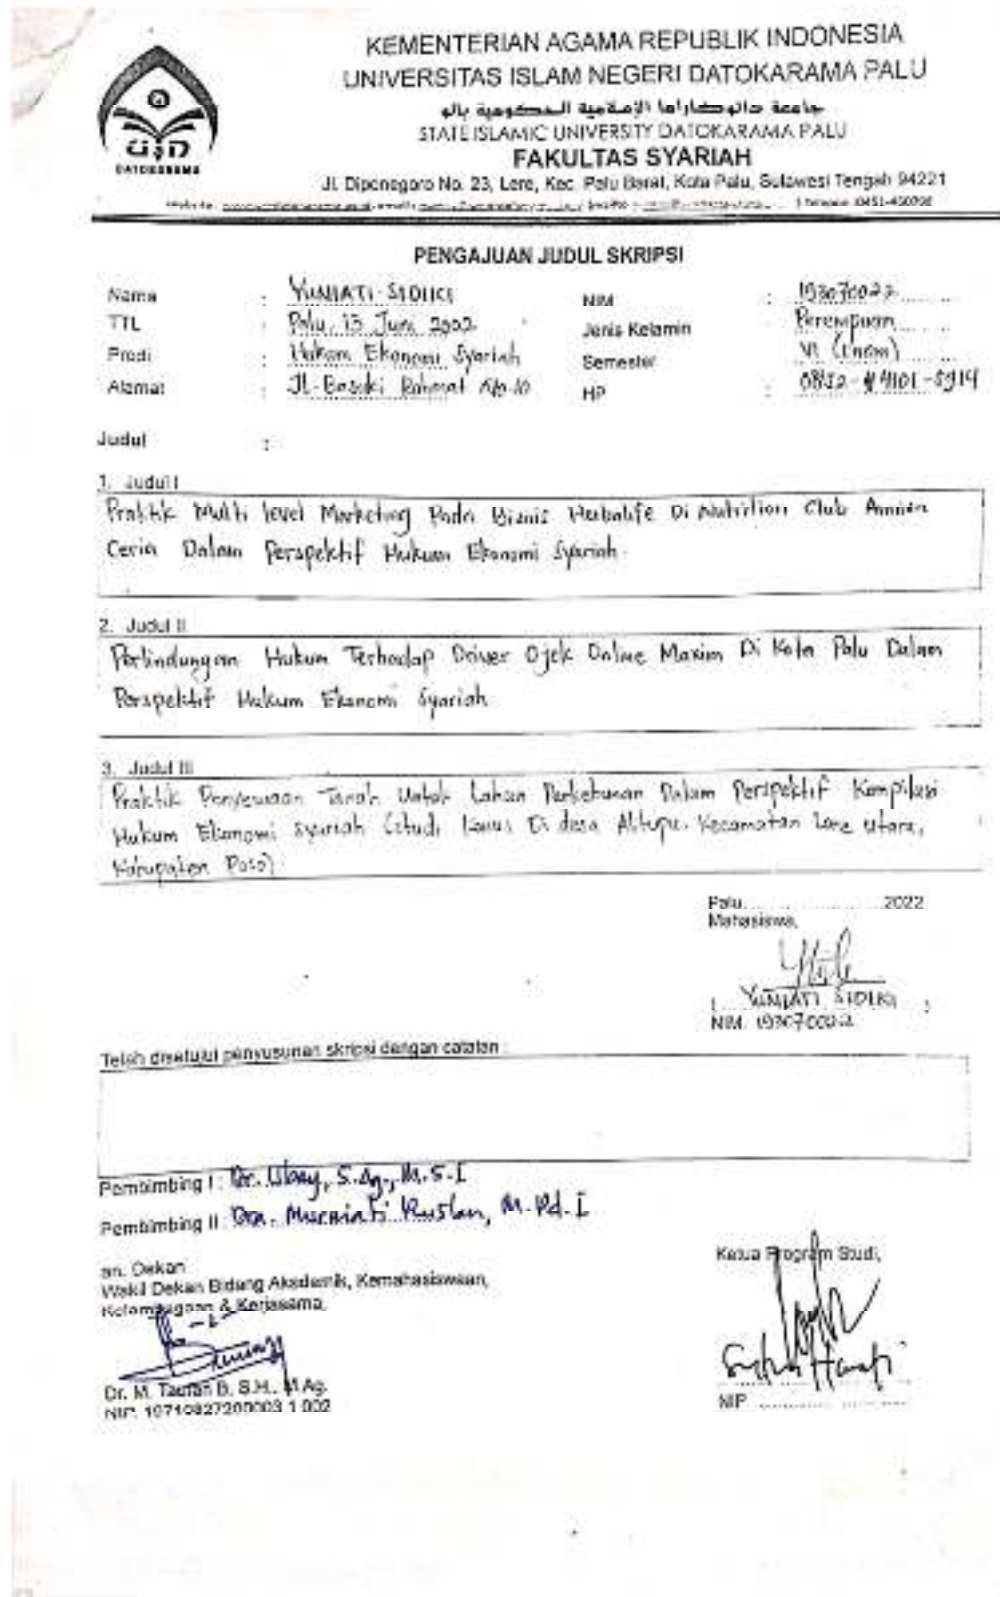 KEMENTERIAN AGAMA REPUBLIK INDONESIA
UNIVERSITAS ISLAM NEGERI DATOKARAMA PALU
جامعة داتوكاراما الإسلامية الحكومية بالو
STATE ISLAMIC UNIVERSITY DATOKARAMA PALU
FAKULTAS SYARIAH
DATOKARAMA
Jl. Diponegoro No. 23, Lere, Kec. Palu Barat, Kota Palu, Sulawesi Tengah 94221
PENGAJUAN JUDUL SKRIPSI
Nama : YUNIATI SIDIKI NIM : 193070022
TTL : Palu, 13 Juni 2002 Jenis Kelamin : Perempuan
Prodi : Hukum Ekonomi Syariah Semester : VI (Enam)
Alamat : Jl. Basuki Rahmat No. 10 HP :
Judul :
1. Judul I
Praktik Multi level Marketing Pada Bisnis Herbalife Di Nutrition Club Ceria Dalam Perspektif Hukum Ekonomi Syariah.
2. Judul II
Perlindungan Hukum Terhadap Driver Ojek Online Maxim Di Kota Palu Dalam
Perspektif Hukum Ekonomi Syariah
3. Judul III
Praktik Penyewaan Tanah Untuk Lahan Perkebunan Dalam Perspektif Kompilasi
Hukum Ekonomi Syariah (studi kasus Di desa Kecamatan Lore utara,
Kabupaten Poso)
Palu, 2022
Mahasiswa,
( YUNIATI SIDIKI )
NIM. 193070022
Telah disetujui penyusunan skripsi dengan catatan :
Pembimbing I : Dr. Ubay, S.Ag., M.S.I
Pembimbing II : Dra. Murniati Ruslan, M.Pd.I
an. Dekan
Wakil Dekan Bidang Akademik, Kemahasiswaan,
Kelembagaan & Kerjasama,
Dr. M. Taufan B, S.H., M.Ag.
NIP. 19710827200003 1 002
Ketua Program Studi,
NIP